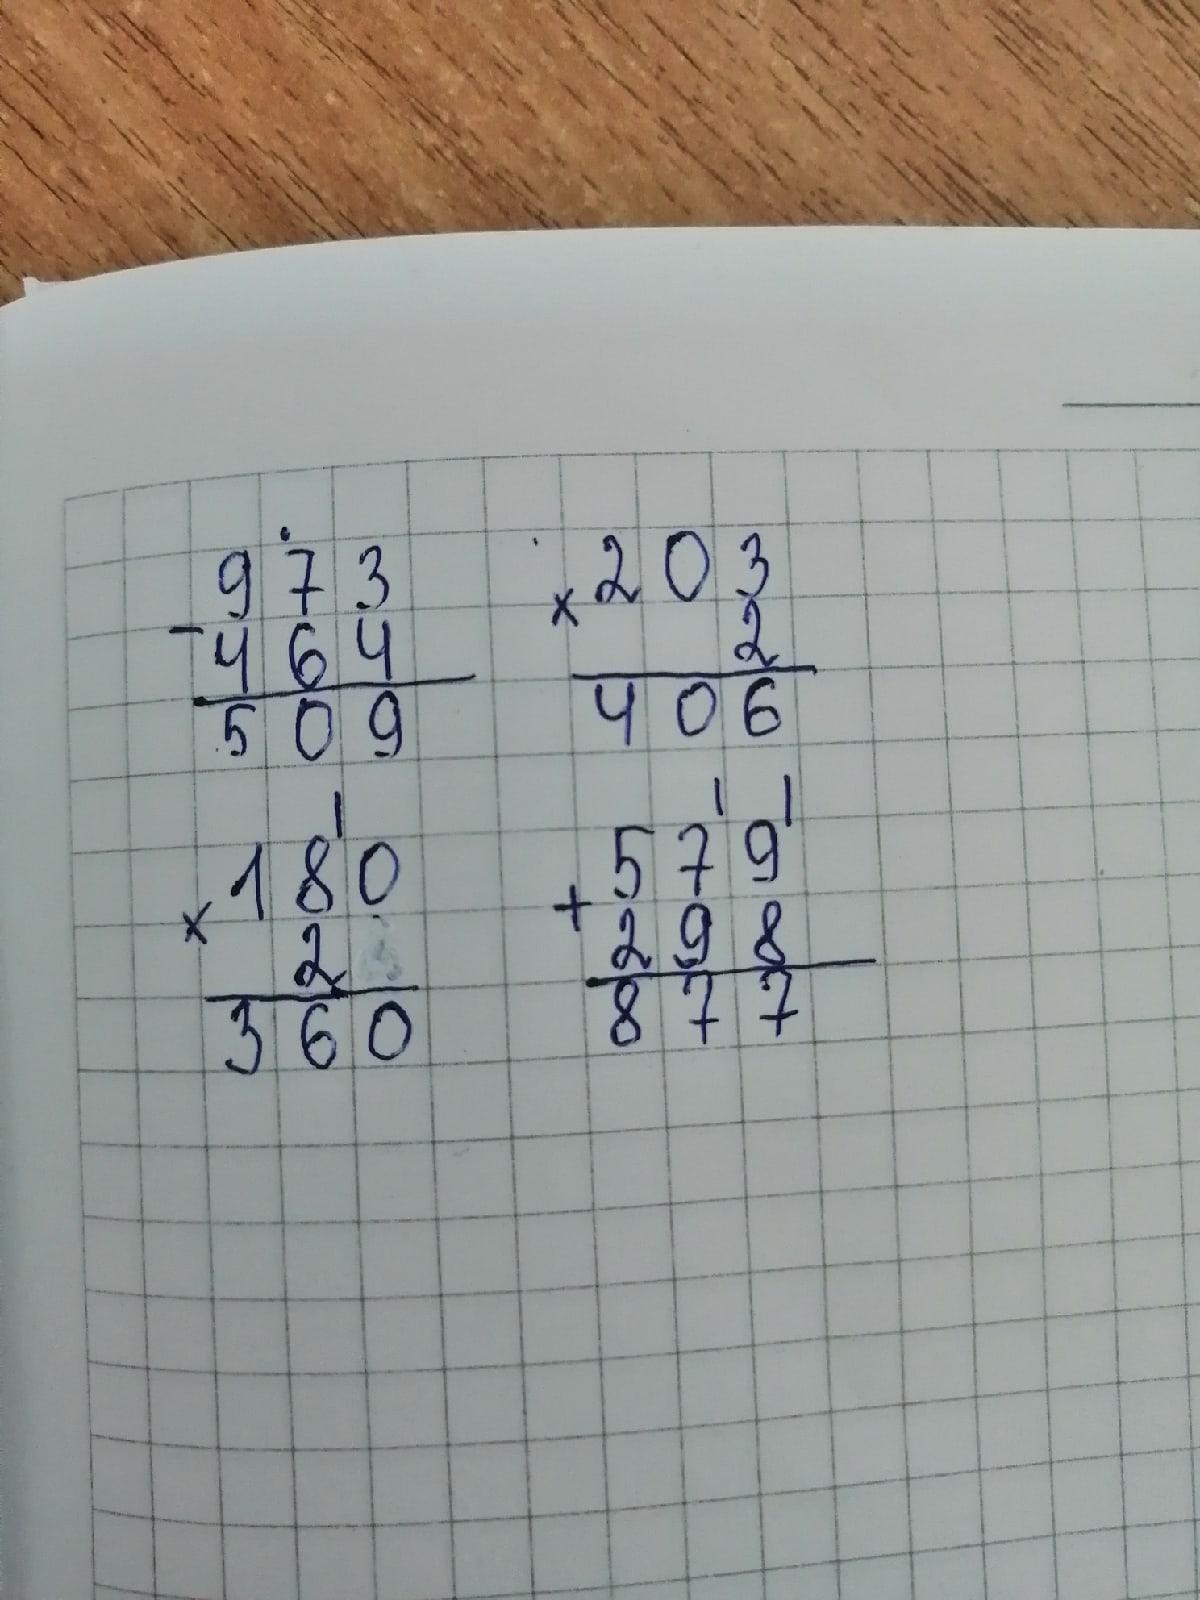 973
- 464
509
× 203
2
406
1
× 180
2
360
1 1
579
+ 298
877